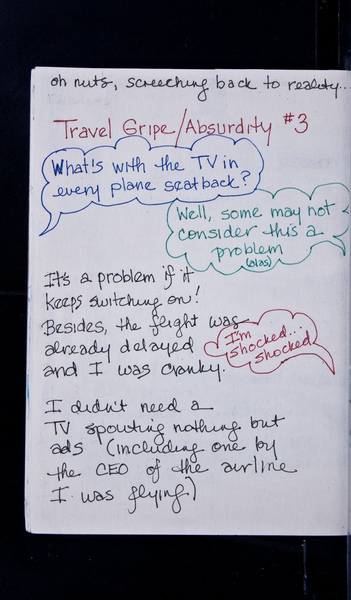 oh nuts, screeching back to reality...
Travel Gripe/Absurdity #3
What's with the TV in
every plane seatback?
Well, some may not
consider this a
problem
(alas)
It's a problem if it
keeps switching on!
Besides, the flight was
already delayed
and I was cranky.
I'm
shocked...
shocked
I didn't need a
TV spouting nothing but
ads (including one by
the CEO of the airline
I was flying.)